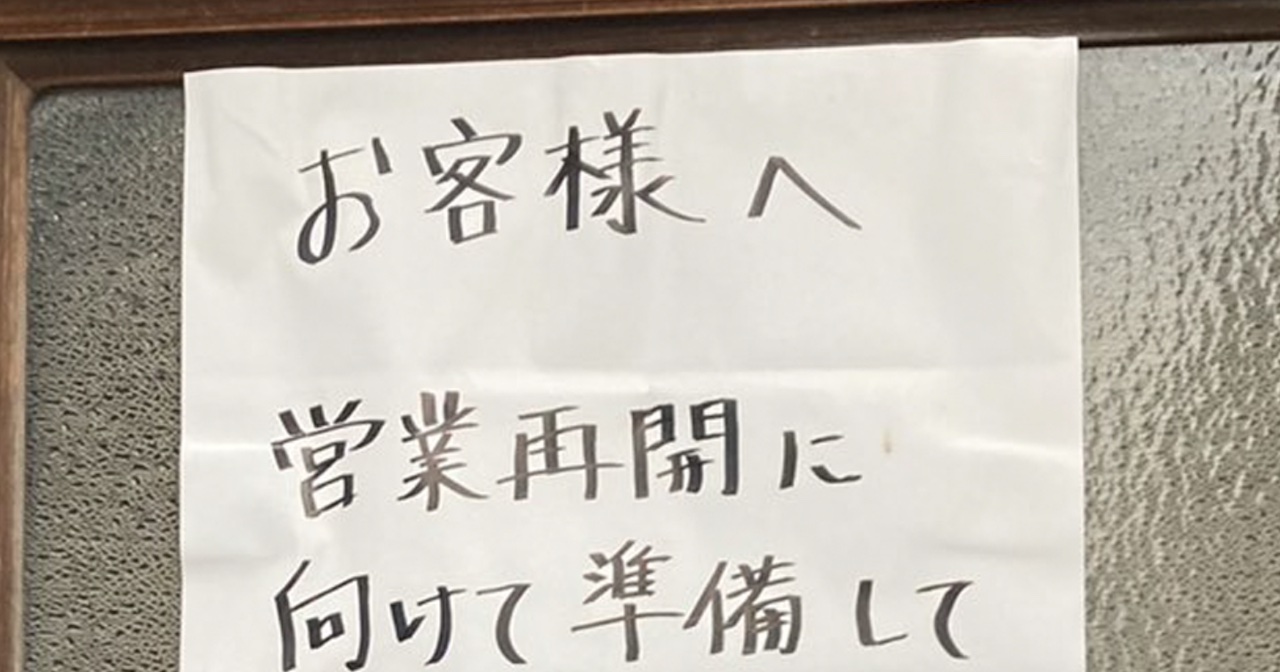 お客様へ
営業再開に
向けて準備して